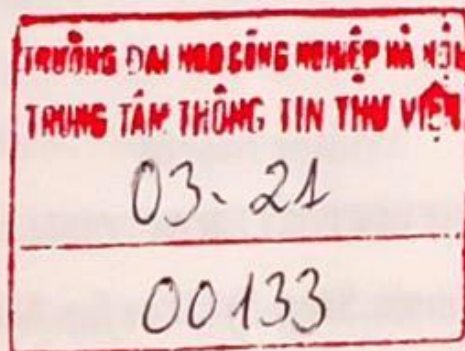 TRƯỜNG ĐẠI HỌC CÔNG NGHIỆP HÀ NỘI
TRUNG TÂM THÔNG TIN THƯ VIỆN
03-21
00133